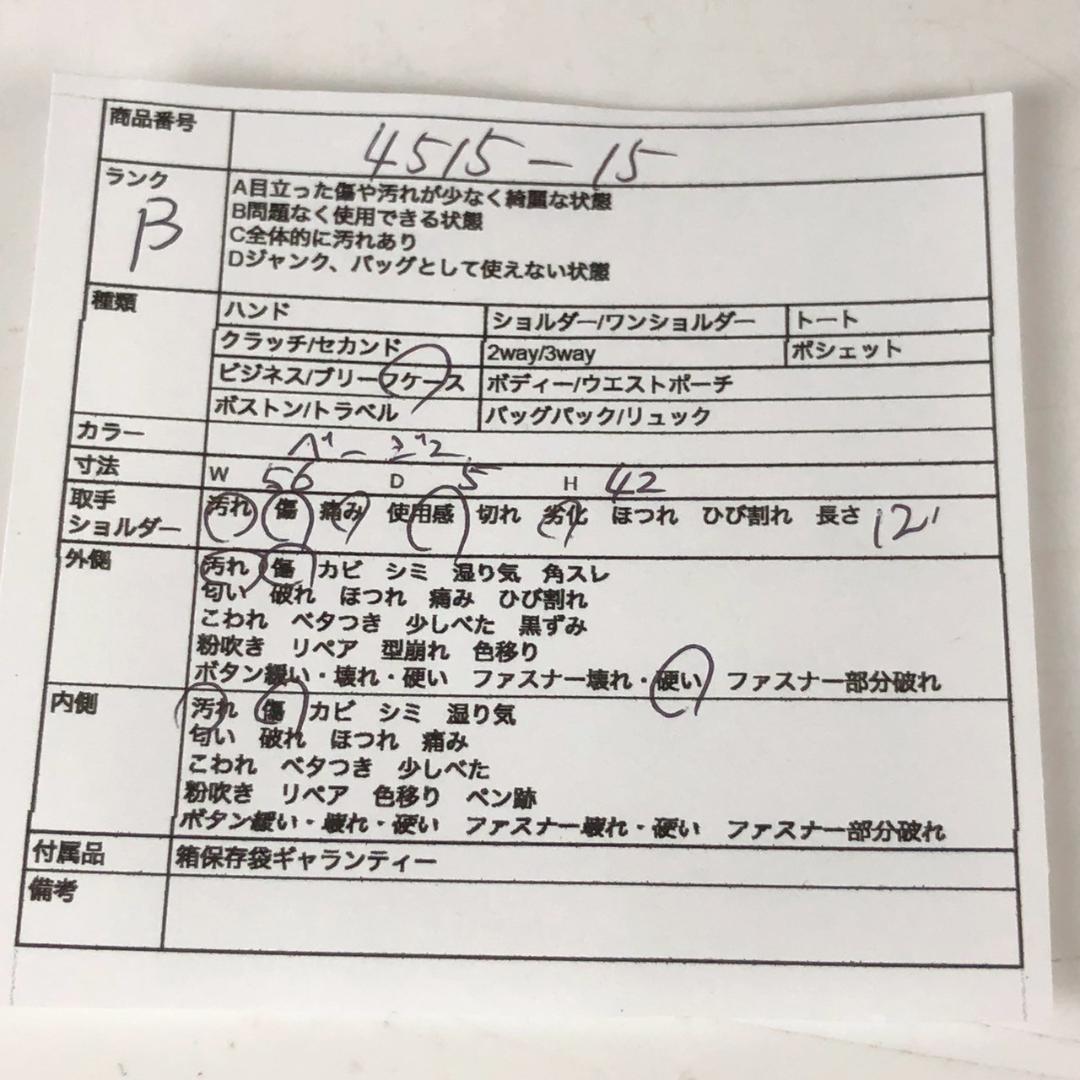 商品番号 4515-15
ランク B
A目立った傷や汚れが少なく綺麗な状態
B問題なく使用できる状態
C全体的に汚れあり
Dジャンク、バッグとして使えない状態
種類 ハンド ショルダー/ワンショルダー トート
クラッチ/セカンド 2way/3way ポシェット
ビジネス/ブリーフケース ボディー/ウエストポーチ
ボストン/トラベル バッグパック/リュック
カラー
寸法 W 56 D 5 H 42
取手 汚れ 傷 痛み 使用感 切れ 劣化 ほつれ ひび割れ 長さ 12
ショルダー
外側 汚れ 傷 カビ シミ 湿り気 角スレ
匂い 破れ ほつれ 痛み ひび割れ
こわれ ベタつき 少しべた 黒ずみ
粉吹き リペア 型崩れ 色移り
ボタン緩い・壊れ・硬い ファスナー壊れ・硬い ファスナー部分破れ
内側 汚れ 傷 カビ シミ 湿り気
匂い 破れ ほつれ 痛み
こわれ ベタつき 少しべた
粉吹き リペア 色移り ペン跡
ボタン緩い・壊れ・硬い ファスナー壊れ・硬い ファスナー部分破れ
付属品 箱保存袋ギャランティー
備考